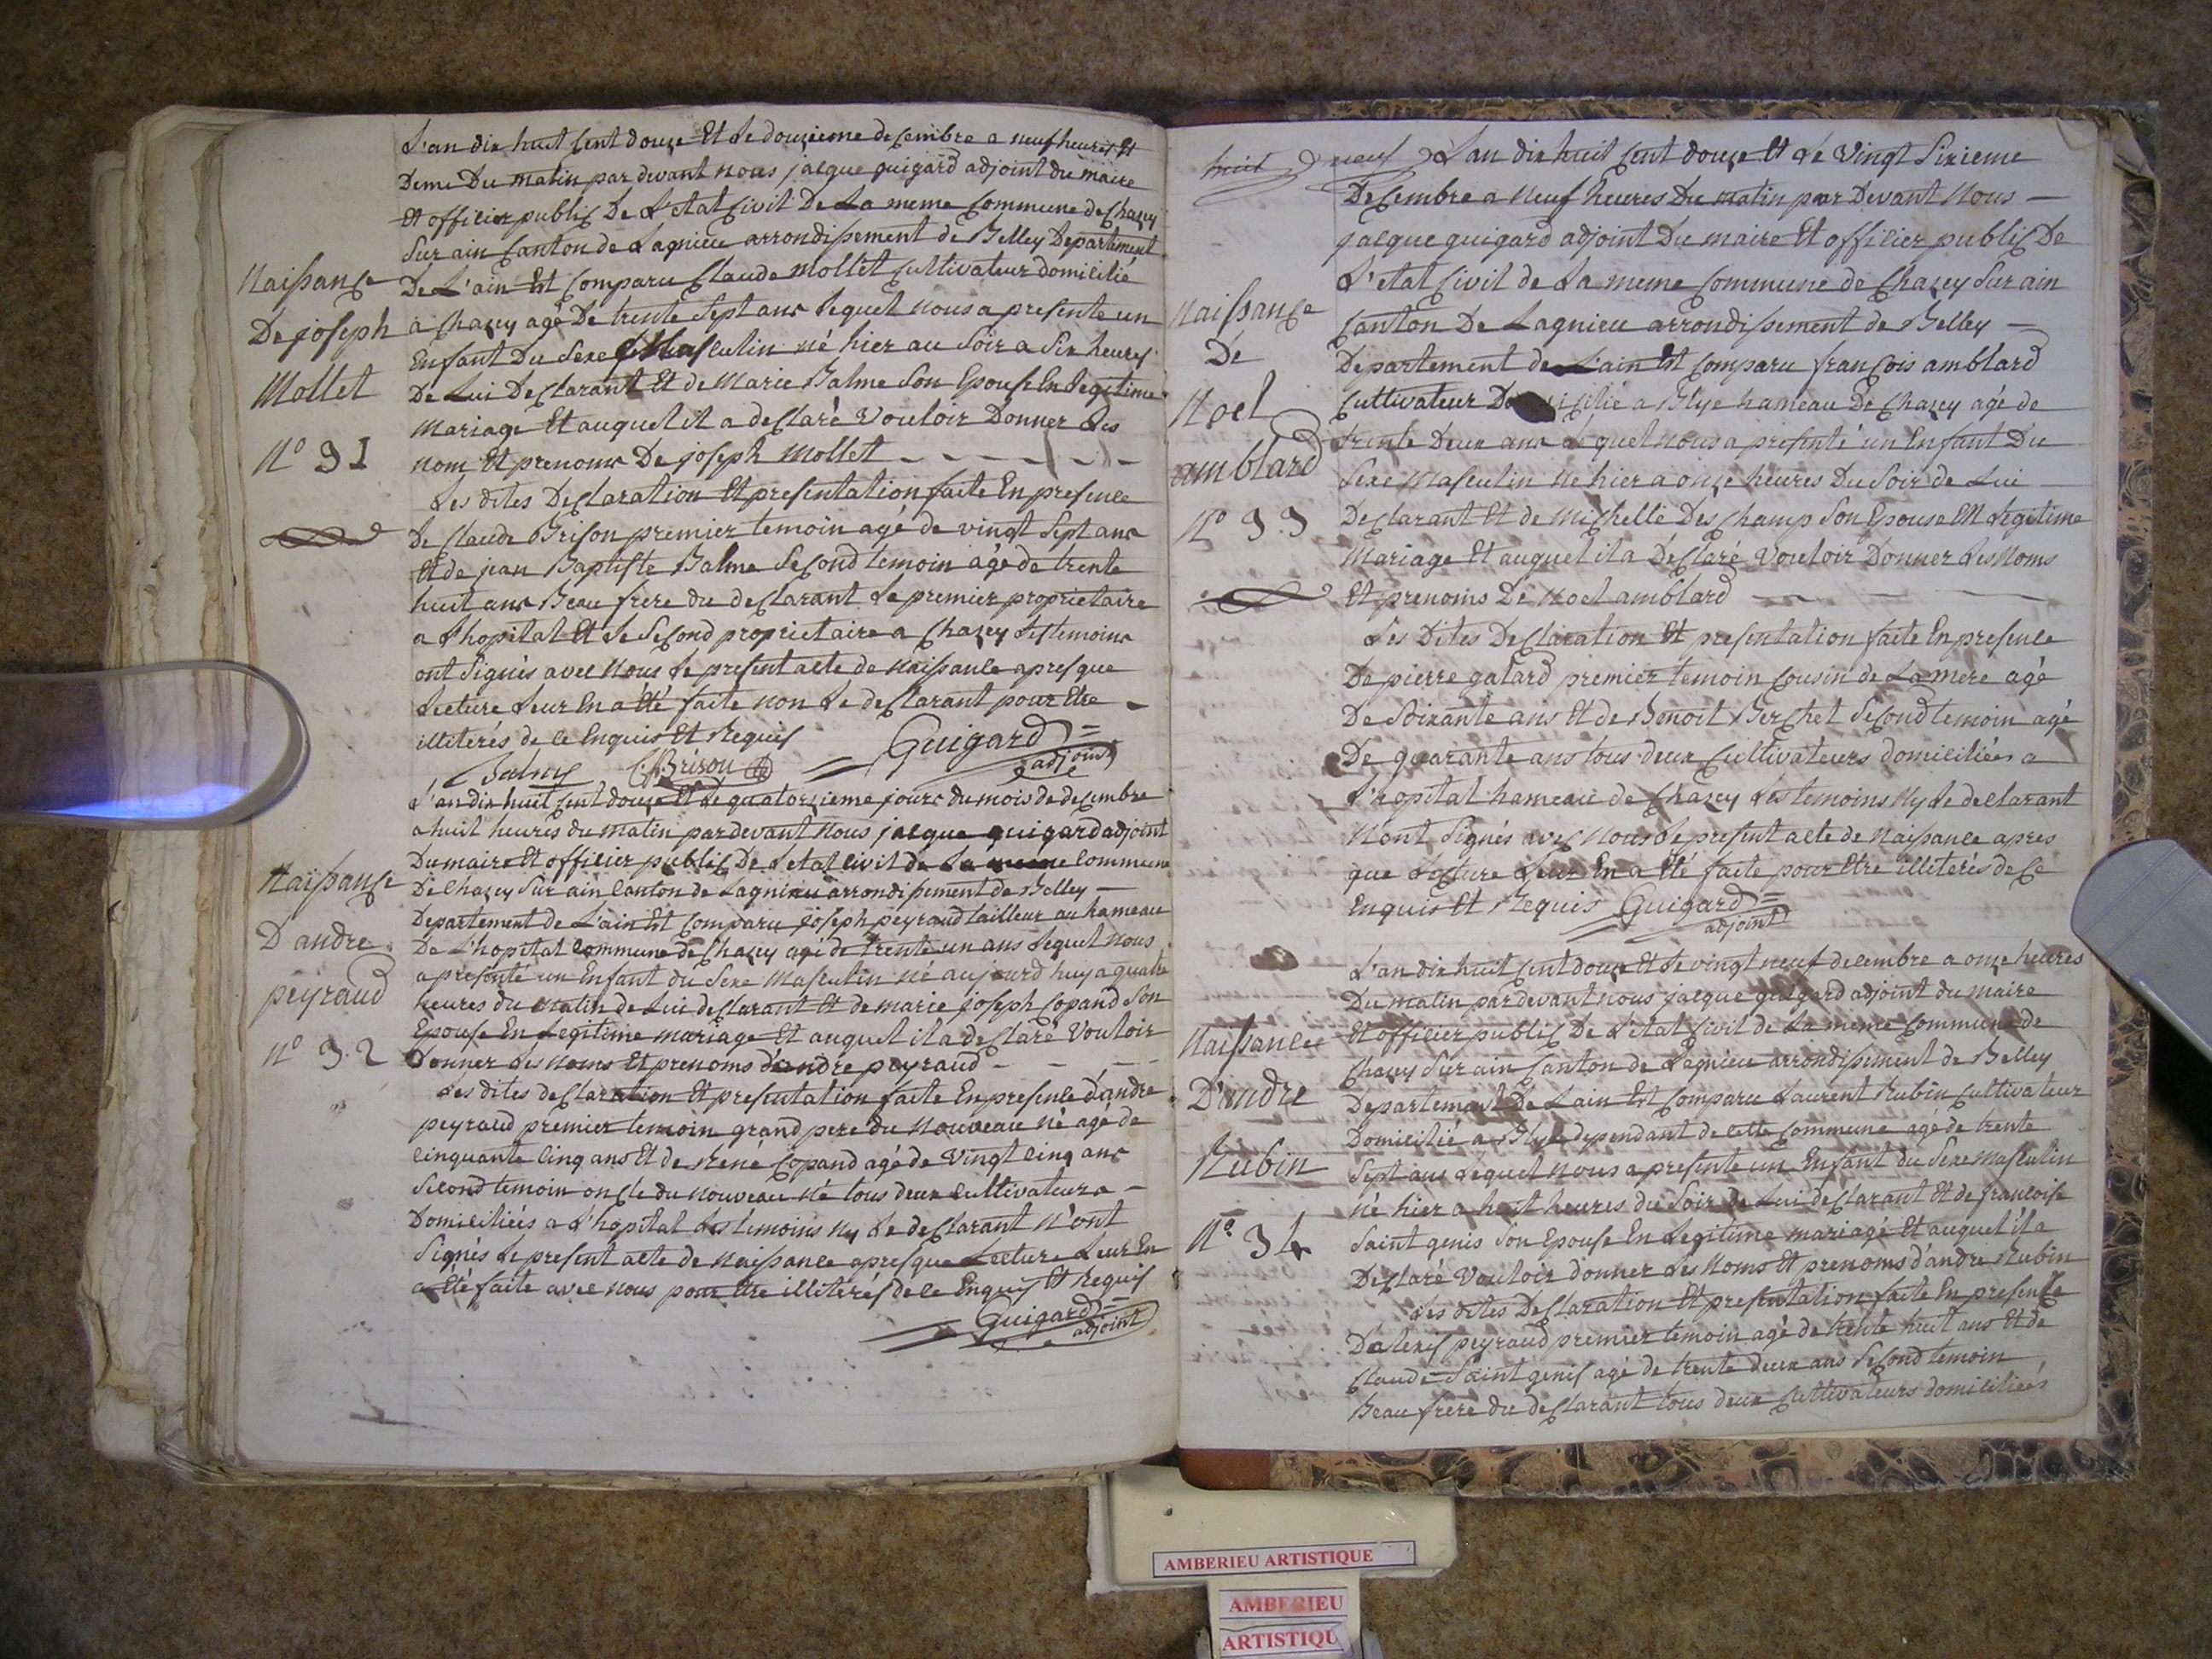 L'an dix huit Cent douze Et Le douzieme decembre a neuf heures Et
Deme Du matin par devant nous jacque guigard adjoint du maire
Et officier public De L'etat Civil De La meme Commune de Chazey
Sur ain Canton de Lagnieu arrondissement de Belley Departement
De L'ain Est Comparu Claude Mollet Cultivateur domicilié
a Chazey agé De trente Sept ans Lequel nous a presente un
Enfant Du Sexe Masculin né hier au Soir a Six heures
De Lui Declarant Et de Marie Balme Son Epouse En Legitime
Mariage Et auquel il a declaré Vouloir Donner Les
nom Et prenoms De joseph Mollet
Les dites Declaration Et presentation faite En presence
De Claude Brison premier temoin agé de vingt Sept ans
Et de jean Baptiste Balme Second temoin agé de trente
huit ans Beau frere du declarant Le premier proprietaire
a L'hopital Et Le Second proprietaire a Chazey Les temoins
ont Signés avec Nous Le present acte de Naissance apres que
Lecture Leur En a Eté faite non Le declarant pour Etre
illiterés de ce Enquis Et Requis
Guigard
adjoint
Brison
Naissance
De joseph
Mollet
N° 31
L'an dix huit Cent douze Et Le quatorzieme jours du mois de decembre
a huit heures du matin par devant nous jacque guigard adjoint
Du maire Et officier public De L'etat civil de La meme Commune
De Chazey Sur ain Canton de Lagnieu arrondissement de Belley
Departement de L'ain Est Comparu joseph peyraud tailleur au hameau
De L'hopital Commune de Chazey agé de trente un ans Lequel nous
a presenté un Enfant du Sexe Masculin né aujourd huy a quatre
heures du matin de Lui declarant Et de marie joseph Copand Son
Epouse En Legitime mariage Et auquel il a declaré Vouloir
Donner Les noms Et prenoms d'andre peyraud
Les dites declaration Et presentation faite En presence d'andre
peyraud premier temoin grand pere du Nouveau né agé de
cinquante cinq ans Et de René Copand agé de Vingt cinq ans
Second temoin oncle du nouveau né tous deux cultivateurs
Domiciliés a L'hopital Les temoins ny Le declarant N'ont
Signés Le present acte de Naissance apres que Lecture Leur En
a Eté faite avec nous pour Etre illiterés de ce Enquis Et Requis
Guigard
adjoint
Naissance
D andre
peyraud
n° 32
huit neuf L'an dix huit Cent douze Et Le Vingt Sixieme
Decembre a Neuf heures Du matin par Devant Nous
jacque guigard adjoint Du maire Et officier public De
L'etat Civil de La meme Commune de Chazey Sur ain
Canton De Lagnieu arrondissement de Belley
Departement de L'ain Est Comparu francois amblard
Cultivateur a Blye hameau De Chazey agé de
trente Deux ans Lequel nous a presenté un Enfant Du
Sexe Masculin né hier a onze heures Du Soir de Lui
Declarant Et de Michelle Deschamp Son Epouse En Legitime
Mariage Et auquel il a Declaré Vouloir Donner Les Noms
Et prenoms De Noel amblard
Les Dites Declaration Et presentation faite En presence
De pierre galard premier temoin Cousin de La mere agé
De Soixante ans Et de Benoit Berchet Second temoin agé
De quarante ans tous deux Cultivateurs domiciliés a
L'hopital hameau de Chazey Les temoins Ny Le declarant
N'ont Signés avec Nous Le present acte de Naissance apres
que Lecture Leur En a Eté faite pour Etre illiterés de Ce
Enquis Et Requis Guigard
adjoint
Naissance
De
Noel
amblard
N° 33
L'an dix huit Cent douze Et Le vingt neuf decembre a onze heures
Du matin par devant nous jacque guigard adjoint du maire
Et officier public De L'etat Civil de La meme Commune de
Chazey Sur ain Canton de Lagnieu arrondissement de Belley
Departement De L'ain Est Comparu Laurent Rubin Cultivateur
Domicilié a Blye dependant de cette Commune agé de trente
Sept ans Lequel nous a presente un Enfant du Sexe masculin
né hier a huit heures du Soir de Lui declarant Et de francoise
Saint genis Son Epouse En Legitime mariage Et auquel il a
Declaré Vouloir donner Les Noms Et prenoms d'andre Rubin
Les dites Declaration Et presentation faite En presence
D'alexis peyraud premier temoin agé de trente huit ans Et de
Claude Saint genis agé de trente deux ans Second temoin
Beau frere du declarant tous deux Cultivateurs domiciliés
Naissance
D'andre
Rubin
N° 34
AMBERIEU ARTISTIQUE
AMBERIEU
ARTISTIQU